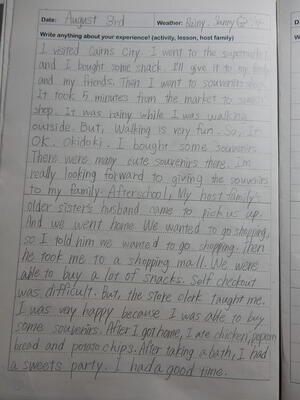 Date: August 3rd Weather: Rainy, Sunny
Write anything about your experience! (activity, lesson, host family)
I visited Cairns City. I went to the supermarket
and I bought some snack. I'll give it to my
and my friends. Then I went to souvenir shop.
It took 5 minutes from the market to
shop. It was rainy while I was walking
ourside. But, Walking is very fun. So, I'm
OK. okidoki. I bought some souvenirs.
There were many cute souvenirs there. I'm
really looking forward to giving the souvenirs
to my family. Afterschool, My host family's
older sister's husband came to pick us up.
And we went home. We wanted to go shopping,
so I told him we wanted to go shopping. Then
he took me to a shopping mall. We were
able to buy a lot of snacks. Self checkout
was difficult. But, the store clerk taught me.
I was very happy because I was able to buy
some souvenirs. After I got home, I ate chicken,
bread and potato chips. After taking a bath, I had
a sweets party. I had a good time.